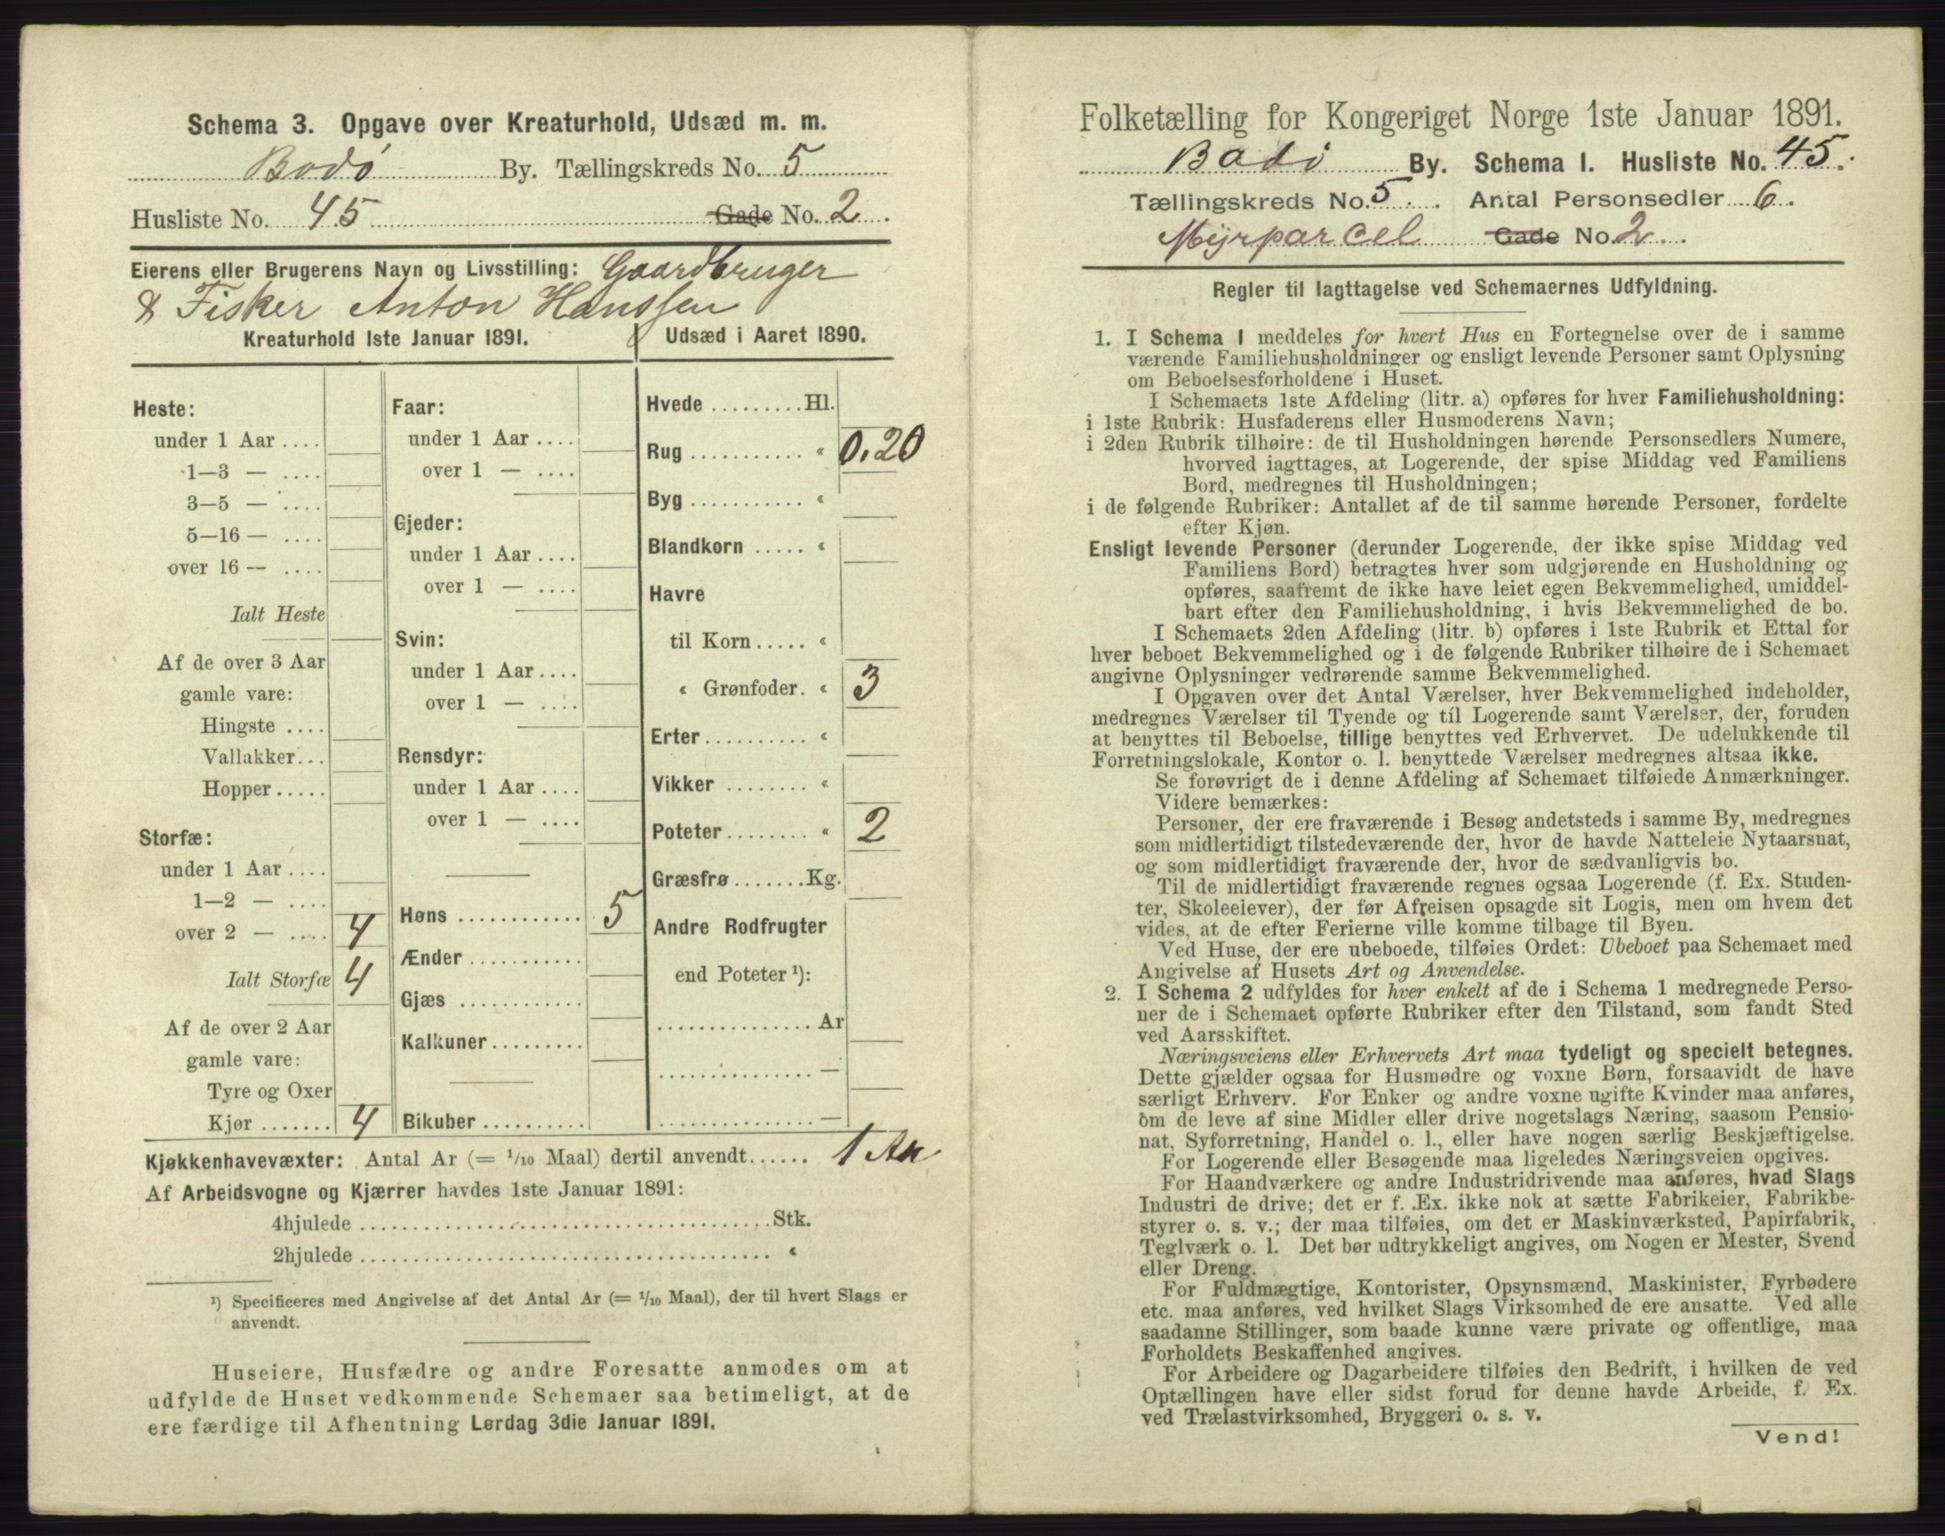 Schema 3. Opgave over Kreaturhold, Udsæd m. m.
Bodø By. Tællingskreds No. 5
Husliste No. 45 Gade No. 2.
Eierens eller Brugerens Navn og Livsstilling: Gaardbruger
& Fisker Anton Hanssen
Kreaturhold 1ste Januar 1891.
Heste:
under 1 Aar ....
1—3 — ....
3—5 — ....
5—16 — ....
over 16 — ....
Ialt Heste
Af de over 3 Aar
gamle vare:
Hingste ....
Vallakker...
Hopper.....
Storfæ:
under 1 Aar ....
1—2 — ....
over 2 — .... 4
Ialt Storfæ 4
Af de over 2 Aar
gamle vare:
Tyre og Oxer
Kjør ....... 4
Faar:
under 1 Aar ....
over 1 — ....
Gjeder:
under 1 Aar ....
over 1 — ....
Svin:
under 1 Aar ....
over 1 — ....
Rensdyr:
under 1 Aar ....
over 1 — ....
Høns ............ 5
Ænder ...........
Gjæs ............
Kalkuner.........
Bikuber ..........
Udsæd i Aaret 1890.
Hvede .........Hl.
Rug ........... « 0.20
Byg ........... «
Blandkorn ..... «
Havre
til Korn..... «
« Grønfoder. « 3
Erter.......... «
Vikker ........ «
Poteter........ « 2
Græsfrø.......Kg.
Andre Rodfrugter
end Poteter ¹):
...............Ar
............... —
............... —
Kjøkkenhavevæxter: Antal Ar (= 1/10 Maal) dertil anvendt...... 1 Ar
Af Arbeidsvogne og Kjærrer havdes 1ste Januar 1891:
4hjulede ........................................Stk.
2hjulede ........................................ «
¹) Specificeres med Angivelse af det Antal Ar (= 1/10 Maal), der til hvert Slags er
anvendt.
Huseiere, Husfædre og andre Foresatte anmodes om at
udfylde de Huset vedkommende Schemaer saa betimeligt, at de
ere færdige til Afhentning Lørdag 3die Januar 1891.
Folketælling for Kongeriget Norge 1ste Januar 1891.
Bodø By. Schema 1. Husliste No. 45.
Tællingskreds No. 5. Antal Personsedler 6.
Myrparcel Gade No. 2.
Regler til Iagttagelse ved Schemaernes Udfyldning.
1. I Schema 1 meddeles for hvert Hus en Fortegnelse over de i samme
værende Familiehusholdninger og ensligt levende Personer samt Oplysning
om Beboelsesforholdene i Huset.
I Schemaets 1ste Afdeling (litr. a) opføres for hver Familiehusholdning:
i 1ste Rubrik: Husfaderens eller Husmoderens Navn;
i 2den Rubrik tilhøire: de til Husholdningen hørende Personsedlers Numere,
hvorved iagttages, at Logerende, der spise Middag ved Familiens
Bord, medregnes til Husholdningen;
i de følgende Rubriker: Antallet af de til samme hørende Personer, fordelte
efter Kjøn.
Ensligt levende Personer (derunder Logerende, der ikke spise Middag ved
Familiens Bord) betragtes hver som udgjørende en Husholdning og
opføres, saafremt de ikke have leiet egen Bekvemmelighed, umiddel-
bart efter den Familiehusholdning, i hvis Bekvemmelighed de bo.
I Schemaets 2den Afdeling (litr. b) opføres i 1ste Rubrik et Ettal for
hver beboet Bekvemmelighed og i de følgende Rubriker tilhøire de i Schemaet
angivne Oplysninger vedrørende samme Bekvemmelighed.
I Opgaven over det Antal Værelser, hver Bekvemmelighed indeholder,
medregnes Værelser til Tyende og til Logerende samt Værelser, der, foruden
at benyttes til Beboelse, tillige benyttes ved Erhvervet. De udelukkende til
Forretningslokale, Kontor o. l. benyttede Værelser medregnes altsaa ikke.
Se forøvrigt de i denne Afdeling af Schemaet tilføiede Anmærkninger.
Videre bemærkes:
Personer, der ere fraværende i Besøg andetsteds i samme By, medregnes
som midlertidigt tilstedeværende der, hvor de havde Natteleie Nytaarsnat,
og som midlertidigt fraværende der, hvor de sædvanligvis bo.
Til de midlertidigt fraværende regnes ogsaa Logerende (f. Ex. Studen-
ter, Skoleelever), der før Afreisen opsagde sit Logis, men om hvem det
vides, at de efter Ferierne ville komme tilbage til Byen.
Ved Huse, der ere ubeboede, tilføies Ordet: Ubeboet paa Schemaet med
Angivelse af Husets Art og Anvendelse.
2. I Schema 2 udfyldes for hver enkelt af de i Schema 1 medregnede Perso-
ner de i Schemaet opførte Rubriker efter den Tilstand, som fandt Sted
ved Aarsskiftet.
Næringsveiens eller Erhvervets Art maa tydeligt og specielt betegnes.
Dette gjælder ogsaa for Husmødre og voxne Børn, forsaavidt de have
særligt Erhverv. For Enker og andre voxne ugifte Kvinder maa anføres,
om de leve af sine Midler eller drive nogetslags Næring, saasom Pensio-
nat, Syforretning, Handel o. l., eller have nogen særlig Beskjæftigelse.
For Logerende eller Besøgende maa ligeledes Næringsveien opgives.
For Haandværkere og andre Industridrivende maa anføres, hvad Slags
Industri de drive; det er f. Ex. ikke nok at sætte Fabrikeier, Fabrikbe-
styrer o. s. v.; der maa tilføies, om det er Maskinværksted, Papirfabrik,
Teglværk o. l. Det bør udtrykkeligt angives, om Nogen er Mester, Svend
eller Dreng.
For Fuldmægtige, Kontorister, Opsynsmænd, Maskinister, Fyrbødere
etc. maa anføres, ved hvilket Slags Virksomhed de ere ansatte. Ved alle
saadanne Stillinger, som baade kunne være private og offentlige, maa
Forholdets Beskaffenhed angives.
For Arbeidere og Dagarbeidere tilføies den Bedrift, i hvilken de ved
Optællingen have eller sidst forud for denne havde Arbeide, f. Ex.
ved Trælastvirksomhed, Bryggeri o. s. v.
Vend!